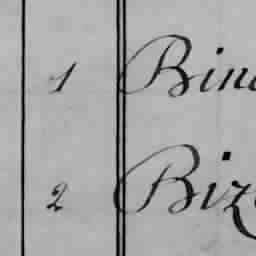 1 Bin
2 Biz